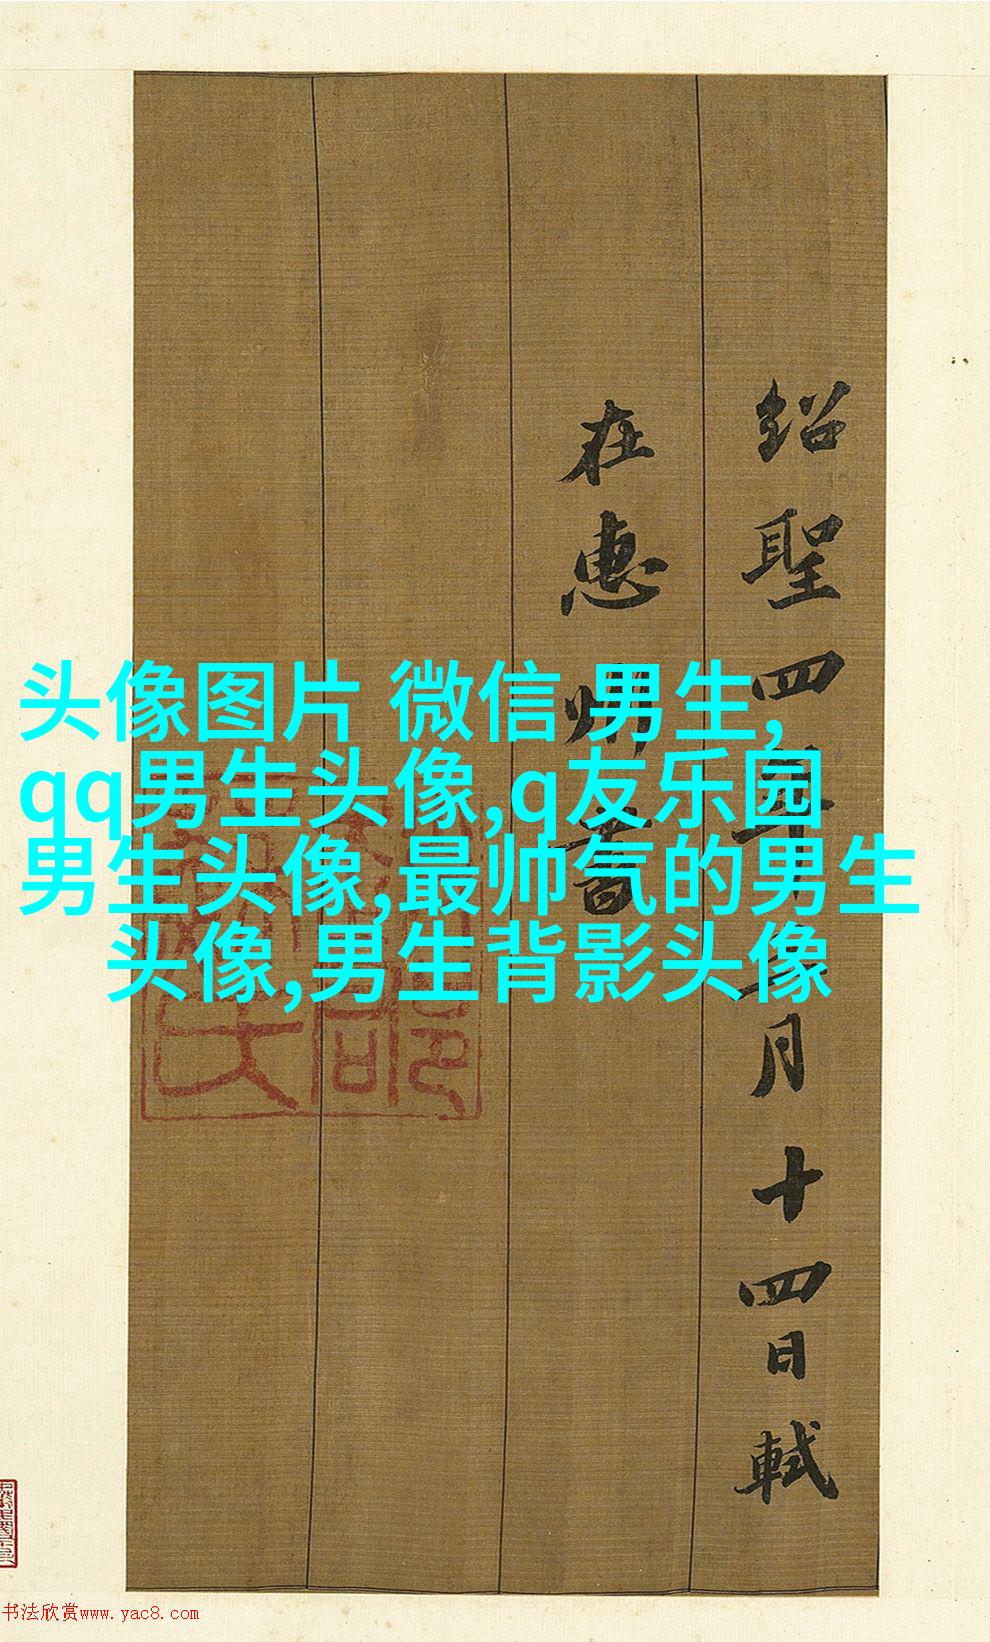 头像图片 微信 男生,
qq男生头像,q友乐园
男生头像,最帅气的男生
头像,男生背影头像
紹聖四年二月十四日軾
在惠州書
书法欣赏www.yac8.com